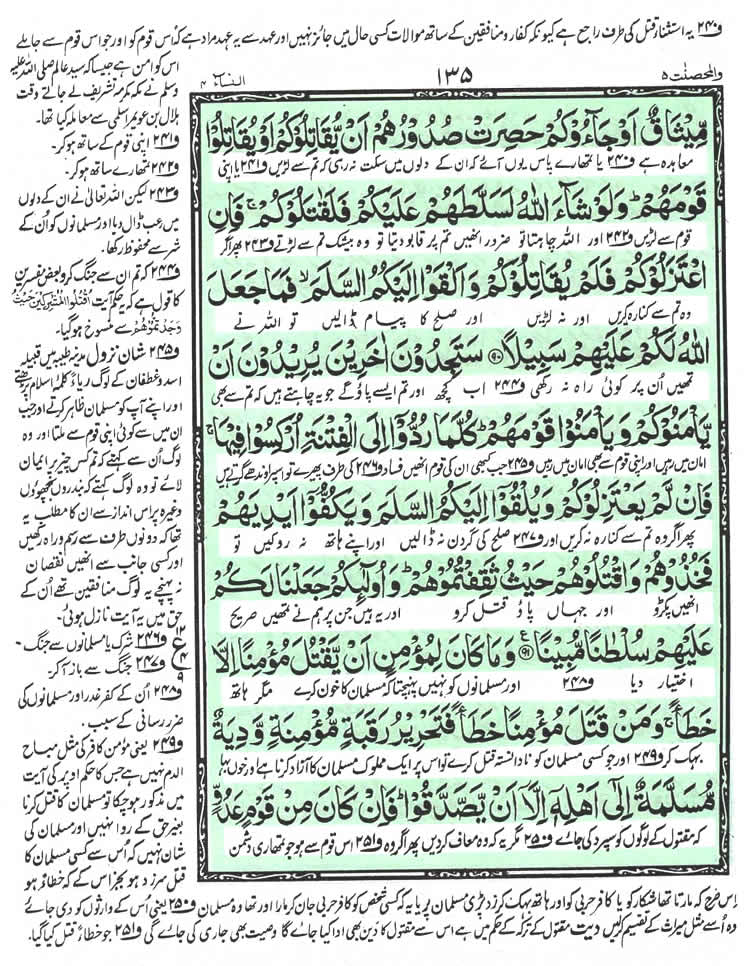 و۲۴۰ یہ استثناء قتل کی طرف راجع ہے کیونکہ کفار و منافقین کے ساتھ موالات کسی حال میں جائز نہیں اور عہد سے یہ عہد مراد ہے کہ اس قوم کو اور جو اس قوم سے جا ملے
والمحصنت ۵
۱۳۵
النساء ۴
اس کو امن ہے جیسا کہ سید عالم صلی اللہ علیہ
وسلم نے مکہ مکرمہ تشریف لے جاتے وقت
ہلال بن عویمر اسلمی سے معاملہ کیا تھا۔
و۲۴۱ اپنی قوم کے ساتھ ہو کر۔
و۲۴۲ تمہارے ساتھ ہو کر۔
و۲۴۳ لیکن اللہ تعالیٰ نے ان کے دلوں
میں رعب ڈال دیا اور مسلمانوں کو ان کے
شر سے محفوظ رکھا۔
و۲۴۴ کہ تم ان سے جنگ کرو بعض مفسرین
کا قول ہے کہ یہ حکم آیت اُقْتُلُوا الْمُشْرِكِيْنَ حَيْثُ
وَجَدْتُّمُوْهُمْ سے منسوخ ہو گیا۔
و۲۴۵ شان نزول مدینہ طیبہ میں قبیلہ
اسد و غطفان کے لوگ ریاءً کلمہ اسلام پڑھتے
اور اپنے آپ کو مسلمان ظاہر کرتے اور جب
ان میں سے کوئی اپنی قوم سے ملتا اور وہ
لوگ ان سے کہتے کہ تم کس چیز پر ایمان
لائے تو وہ لوگ کہتے کہ بندروں بچھوؤں
وغیرہ پر اس انداز سے ان کا مطلب یہ
تھا کہ دونوں طرف سے رسم و راہ رکھیں
اور کسی جانب سے انھیں نقصان
نہ پہنچے یہ لوگ منافقین تھے ان کے
حق میں یہ آیت نازل ہوئی۔
و۲۴۶ شرک یا مسلمانوں سے جنگ۔
و۲۴۷ جنگ سے باز آ کر
و۲۴۸ ان کے کفر غدر اور مسلمانوں کی
ضرر رسانی کے سبب۔
و۲۴۹ یعنی مومن کافر کی مثل مباح
الدم نہیں ہے جس کا حکم اوپر کی آیت
میں مذکور ہو چکا تو مسلمان کا قتل کرنا
بغیر حق کے روا نہیں اور مسلمان کی
شان نہیں کہ اس سے کسی مسلمان کا
قتل سرزد ہو بجز اس کے کہ خطاءً ہو
مِّيْثَاقٌ اَوْ جَآءُوْكُمْ حَصِرَتْ صُدُوْرُهُمْ اَنْ يُّقَاتِلُوْكُمْ اَوْ يُقَاتِلُوْا
معاہدہ ہے و۲۴۰ یا تمہارے پاس یوں آئے کہ ان کے دلوں میں سکت نہ رہی کہ تم سے لڑیں و۲۴۱ یا اپنی
قَوْمَهُمْ ؕ وَلَوْ شَآءَ اللّٰهُ لَسَلَّطَهُمْ عَلَيْكُمْ فَلَقٰتَلُوْكُمْ ۚ فَاِنِ
قوم سے لڑیں و۲۴۲ اور اللہ چاہتا تو ضرور انھیں تم پر قابو دیتا تو وہ بیشک تم سے لڑتے و۲۴۳ پھر اگر
اعْتَزَلُوْكُمْ فَلَمْ يُقَاتِلُوْكُمْ وَاَلْقَوْا اِلَيْكُمُ السَّلَمَ ۙ فَمَا جَعَلَ
وہ تم سے کنارہ کریں اور نہ لڑیں اور صلح کا پیام ڈالیں تو اللہ نے
اللّٰهُ لَكُمْ عَلَيْهِمْ سَبِيْلًا ۹۰ سَتَجِدُوْنَ اٰخَرِيْنَ يُرِيْدُوْنَ اَنْ
تمھیں ان پر کوئی راہ نہ رکھی و۲۴۴ اب کچھ اور تم ایسے پاؤ گے جو یہ چاہتے ہیں کہ تم سے بھی
يَّاْمَنُوْكُمْ وَيَاْمَنُوْا قَوْمَهُمْ ؕ كُلَّمَا رُدُّوْۤا اِلَى الْفِتْنَةِ اُرْكِسُوْا فِيْهَا ۚ
امان میں رہیں اور اپنی قوم سے بھی امان میں رہیں و۲۴۵ جب کبھی ان کی قوم انھیں فساد و۲۴۶ کی طرف پھیرے تو اس پر اوندھے گرتے ہیں
فَاِنْ لَّمْ يَعْتَزِلُوْكُمْ وَيُلْقُوْۤا اِلَيْكُمُ السَّلَمَ وَيَكُفُّوْۤا اَيْدِيَهُمْ
پھر اگر وہ تم سے کنارہ نہ کریں اور و۲۴۷ صلح کی گردن نہ ڈالیں اور اپنے ہاتھ نہ روکیں تو
فَخُذُوْهُمْ وَاقْتُلُوْهُمْ حَيْثُ ثَقِفْتُمُوْهُمْ ؕ وَاُولٰٓئِكُمْ جَعَلْنَا لَكُمْ
انھیں پکڑو اور جہاں پاؤ قتل کرو اور یہ ہیں جن پر ہم نے تمھیں صریح
عَلَيْهِمْ سُلْطٰنًا مُّبِيْنًا ۹۱ وَمَا كَانَ لِمُؤْمِنٍ اَنْ يَّقْتُلَ مُؤْمِنًا اِلَّا
اختیار دیا و۲۴۸ اور مسلمانوں کو نہیں پہنچتا کہ مسلمان کا خون کرے مگر ہاتھ
خَطَـًٔا ۚ وَمَنْ قَتَلَ مُؤْمِنًا خَطَـًٔا فَتَحْرِيْرُ رَقَبَةٍ مُّؤْمِنَةٍ وَّدِيَةٌ
بہک کر و۲۴۹ اور جو کسی مسلمان کو نادانستہ قتل کرے تو اس پر ایک مملوک مسلمان کا آزاد کرنا ہے اور خوں بہا
مُّسَلَّمَةٌ اِلٰۤى اَهْلِهٖۤ اِلَّاۤ اَنْ يَّصَّدَّقُوْا ؕ فَاِنْ كَانَ مِنْ قَوْمٍ عَدُوٍّ
کہ مقتول کے لوگوں کو سپرد کی جائے و۲۵۰ مگر یہ کہ وہ معاف کر دیں پھر اگر وہ و۲۵۱ اس قوم سے ہو جو تمہاری دشمن
اس طرح کہ مارتا تھا شکار کو یا کافر حربی کو اور ہاتھ بہک کر زد پڑی مسلمان پر یا یہ کہ کسی شخص کو کافر حربی جان کر مارا اور تھا وہ مسلمان و۲۵۰ یعنی اس کے وارثوں کو دی جائے
وہ اسے مثل میراث کے تقسیم کر لیں دیت مقتول کے ترکہ کے حکم میں ہے اس سے مقتول کا دین بھی ادا کیا جائے گا وصیت بھی جاری کی جائے گی و۲۵۱ جو خطاءً قتل کیا گیا۔